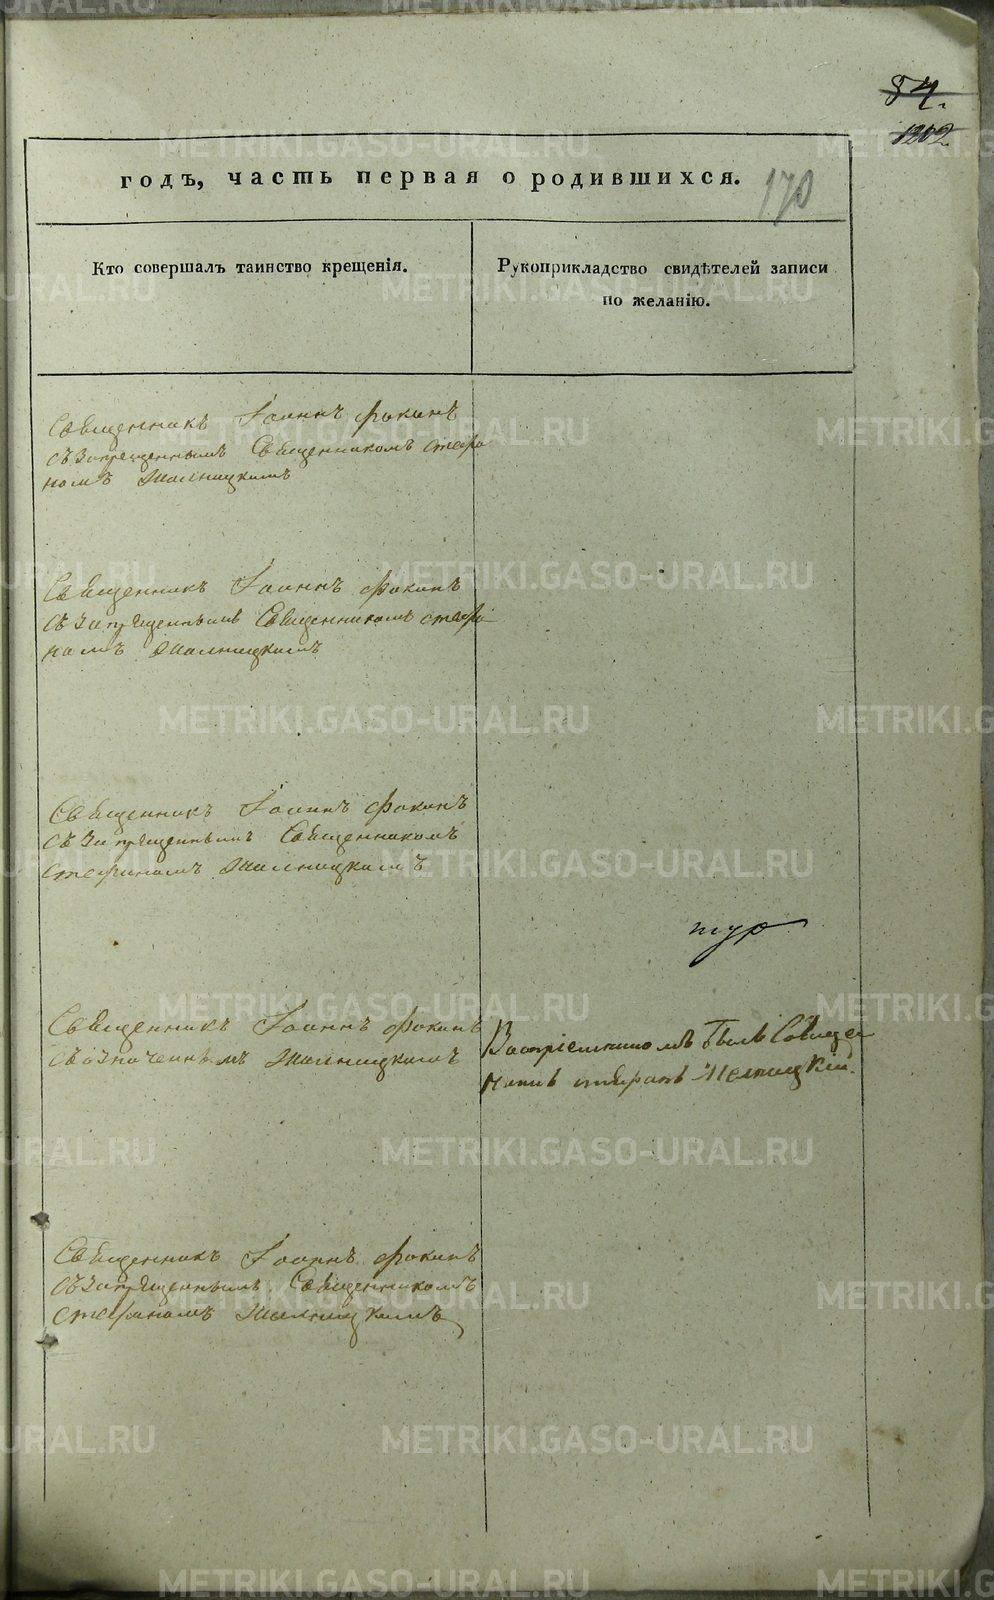 54.
1202
годъ, часть первая о родившихся.
170
Кто совершалъ таинство крещенія.
Рукоприкладство свидѣтелей записи
по желанію.
Священникъ Іоаннъ Фокинъ
съ запрещеннымъ Священникомъ Стефа
номъ
Священникъ Іоаннъ Фокинъ
съ запрещеннымъ Священникомъ Стефа
номъ
Священникъ Іоаннъ Фокинъ
съ запрещеннымъ Священникомъ
Стефаномъ
Священникъ Іоаннъ Фокинъ
съ означеннымъ
Воспріемникомъ былъ Священ
никъ Стефанъ
Священникъ Іоаннъ Фокинъ
съ запрещеннымъ Священникомъ
Стефаномъ
METRIKI.GASO-URAL.RU